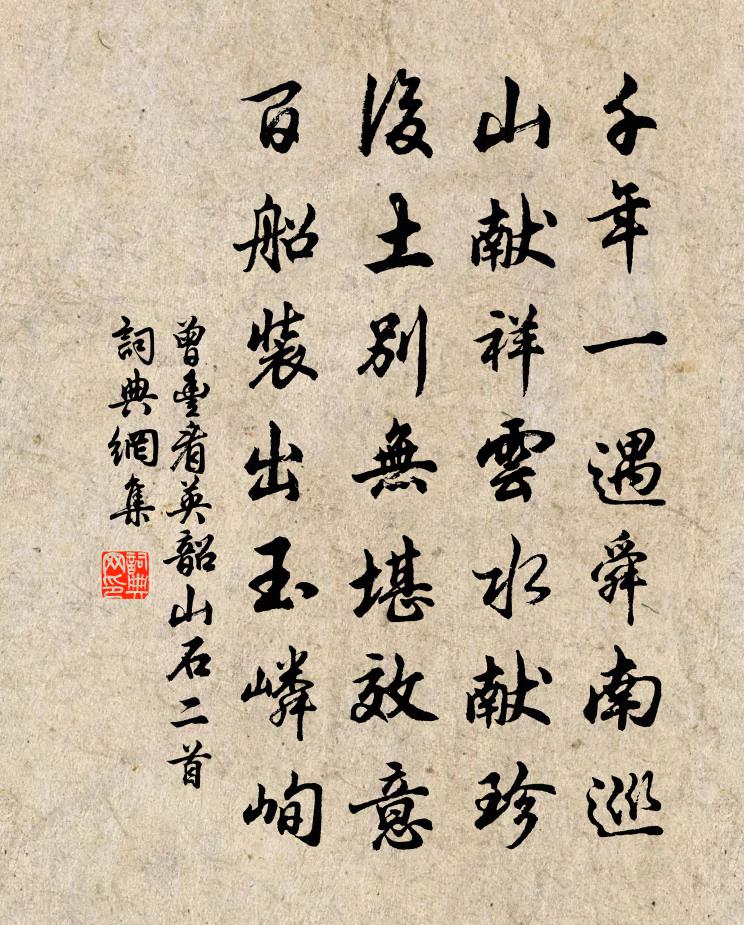 千年一遇舜南巡
山献祥雲水献珍
后土別無堪效意
百船裝出玉嶙峋
曾豐看英韶山石二首
詞典網集
詞典网印